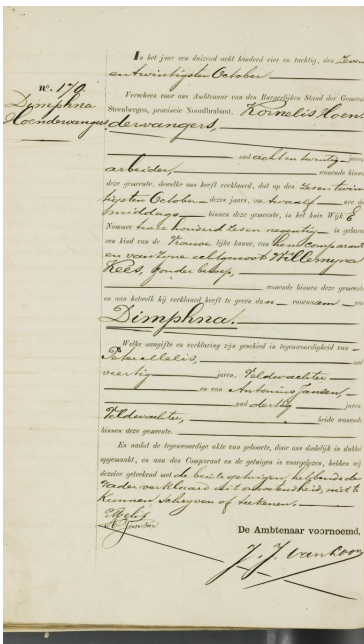 In het jaar een duizend acht honderd vier en tachtig, den Zeven
entwintigsten October
verscheen voor ons Ambtenaar van den Burgerlijken Stand der Gemeente
Steenbergen, provincie Noordbrabant, Kornelis Hoen=
dervangers,
nº. 179.
Dimphna
Hoendervangers
oud acht en twintig jaren
arbeider, wonende binnen
deze gemeente, dewelke ons heeft verklaard, dat op den Zesentwin
tigsten October dezes jaars, om twaalf ure des
middags binnen deze gemeente, in het huis Wijk E
Nommer twee honderd zes en negentig is geboren
een kind van de Vrouwelijke kunne, van hem comparant
en van zyne echtgenoot Willemyna
Kees, zonder beroep,
wonende binnen deze gemeente
en aan hetwelk hij verklaard heeft te geven den voornaam van
Dimphna.
Welke aangifte en verklaring zijn geschied in tegenwoordigheid van
Peter Melis, oud
veertig jaren, Veldwachter
en van Antonius Jansen,
oud dertig jaren,
Veldwachter, beide wonende
binnen deze gemeente.
En is de tegenwoordige akte van geboorte, door ons dadelijk in dubbel
opgemaakt, en aan den Comparant en de getuigen is voorgelezen, hebben wij
dezelve geteekend met de beide getuigen, hebbende de
Vader verklaard uit onwetendheid, niet te
kunnen schryven of teekenen.
Melis
Jansen
De Ambtenaar voornoemd,
J. J. van Loon